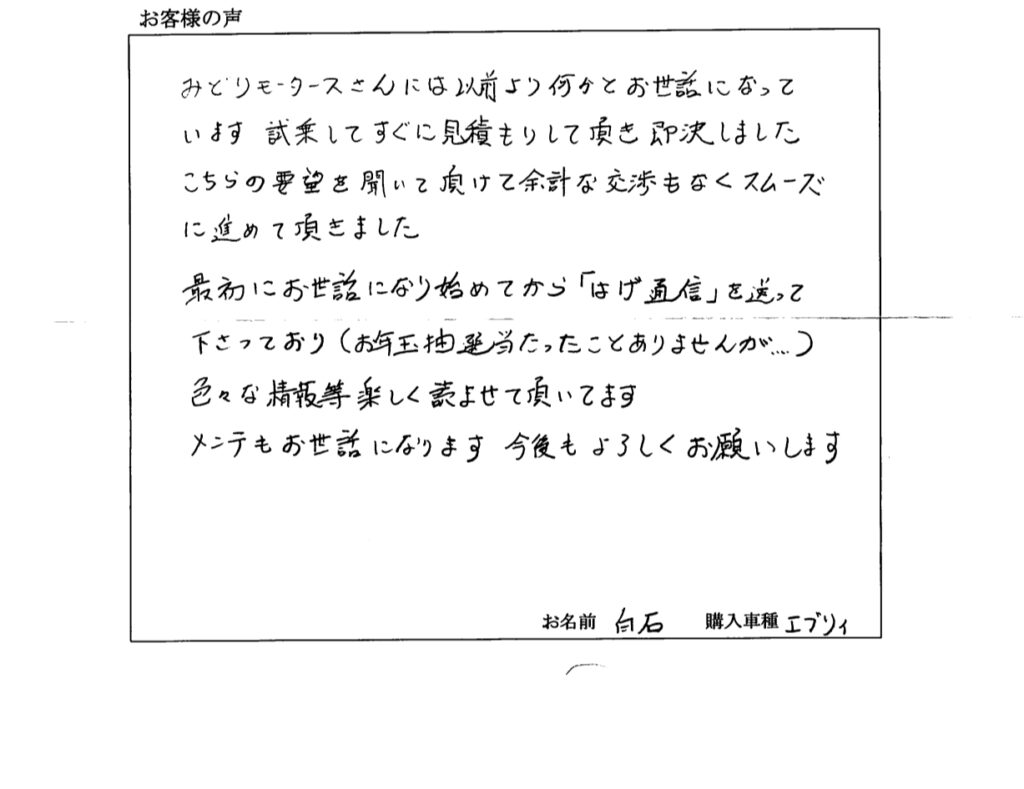 お客様の声
みどりモータースさんには以前より何かとお世話になって
います 試乗してすぐに見積もりして頂き 即決しました
こちらの要望を聞いて頂けて余計な交渉もなくスムーズ
に進めて頂きました
最初にお世話になり始めてから「はげ通信」を送って
下さっており(お年玉抽選当たったことありませんが…)
色々な情報等楽しく読ませて頂いてます
メンテもお世話になります 今後もよろしくお願いします
お名前 白石 購入車種 エブリィ